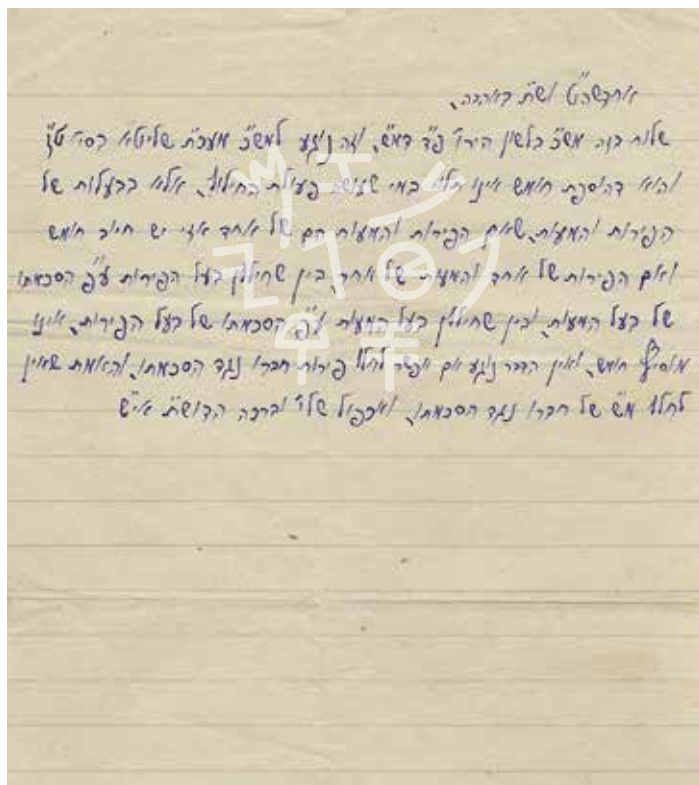 אחדשה"ט וש"ת באהבה,
שלוח בזה מש"כ בלשון הירו' פ"ד דמ"ש, וזה נוגע למש"כ מעכ"ת שליט"א בסי' ט"ז
והוא דהוספת חומש אינו תלוי במי שעושה פעולת החילול, אלא בבעלות של
הפירות והמעות, שאם הפירות והמעות הם של אחד אזי יש חיוב חומש
ואם הפירות של אחד והמעות של אחר, בין שחיללן בעל הפירות ע"פ הסכמתו
של בעל המעות, ובין שחיללן בעל המעות ע"פ הסכמתו של בעל הפירות, אינו
מוסיף חומש, ואין הדבר נוגע אם אפשר לחלל פירות חברו נגד הסכמתו, והאמת שאין
לחלל מ"ש של חברו נגד הסכמתו, ואכפול שלו' וברכה הדוש"ת אי"ש